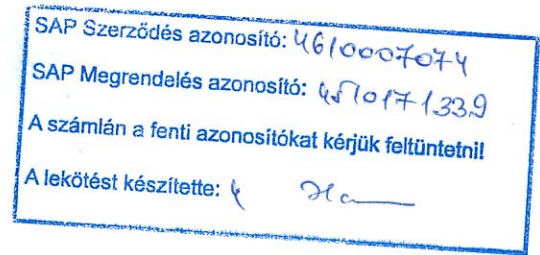 SAP Szerződés azonosító: 4610007074
SAP Megrendelés azonosító: 4510171339
A számlán a fenti azonosítókat kérjük feltüntetni!
A lekötést készítette: